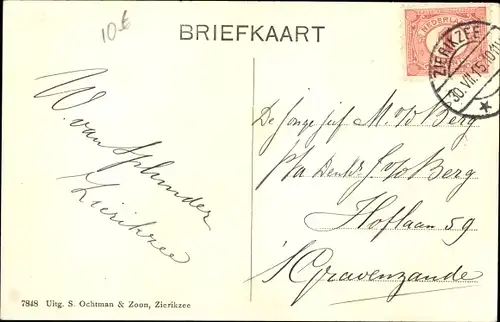 10.€
BRIEFKAART
NEDERLAND
ZIERIKZEE
30.VII.15
W. van Splunder
Zierikzee
De Jonge juf M. v/d Berg
p/a v/d Berg
Hoflaan 59
's Gravenzande
7848 Uitg. S. Ochtman & Zoon, Zierikzee